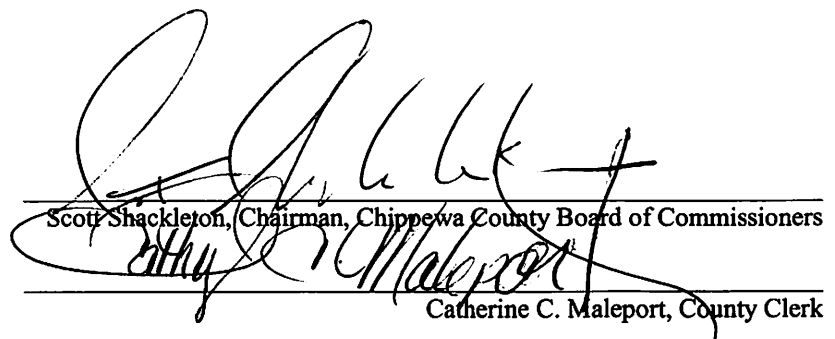 Scott Shackleton, Chairman, Chippewa County Board of Commissioners
Cathy C. Maleport
Catherine C. Maleport, County Clerk